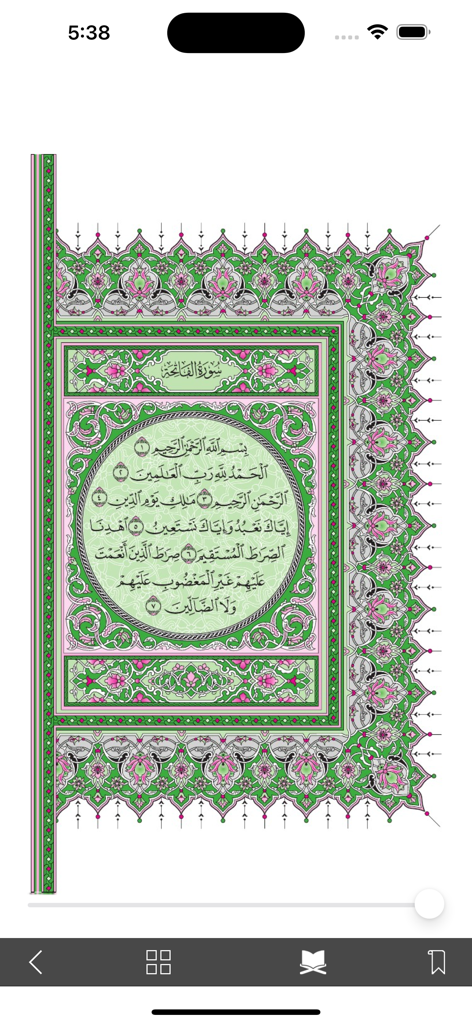 5:38
سُورَةُ الفَاتِحَةِ
بِسْمِ ٱللَّهِ ٱلرَّحْمَٰنِ ٱلرَّحِيمِ ١
ٱلْحَمْدُ لِلَّهِ رَبِّ ٱلْعَٰلَمِينَ ٢
ٱلرَّحْمَٰنِ ٱلرَّحِيمِ ٣ مَٰلِكِ يَوْمِ ٱلدِّينِ ٤
إِيَّاكَ نَعْبُدُ وَإِيَّاكَ نَسْتَعِينُ ٥ ٱهْدِنَا
ٱلصِّرَٰطَ ٱلْمُسْتَقِيمَ ٦ صِرَٰطَ ٱلَّذِينَ أَنْعَمْتَ
عَلَيْهِمْ غَيْرِ ٱلْمَغْضُوبِ عَلَيْهِمْ
وَلَا ٱلضَّآلِّينَ ٧